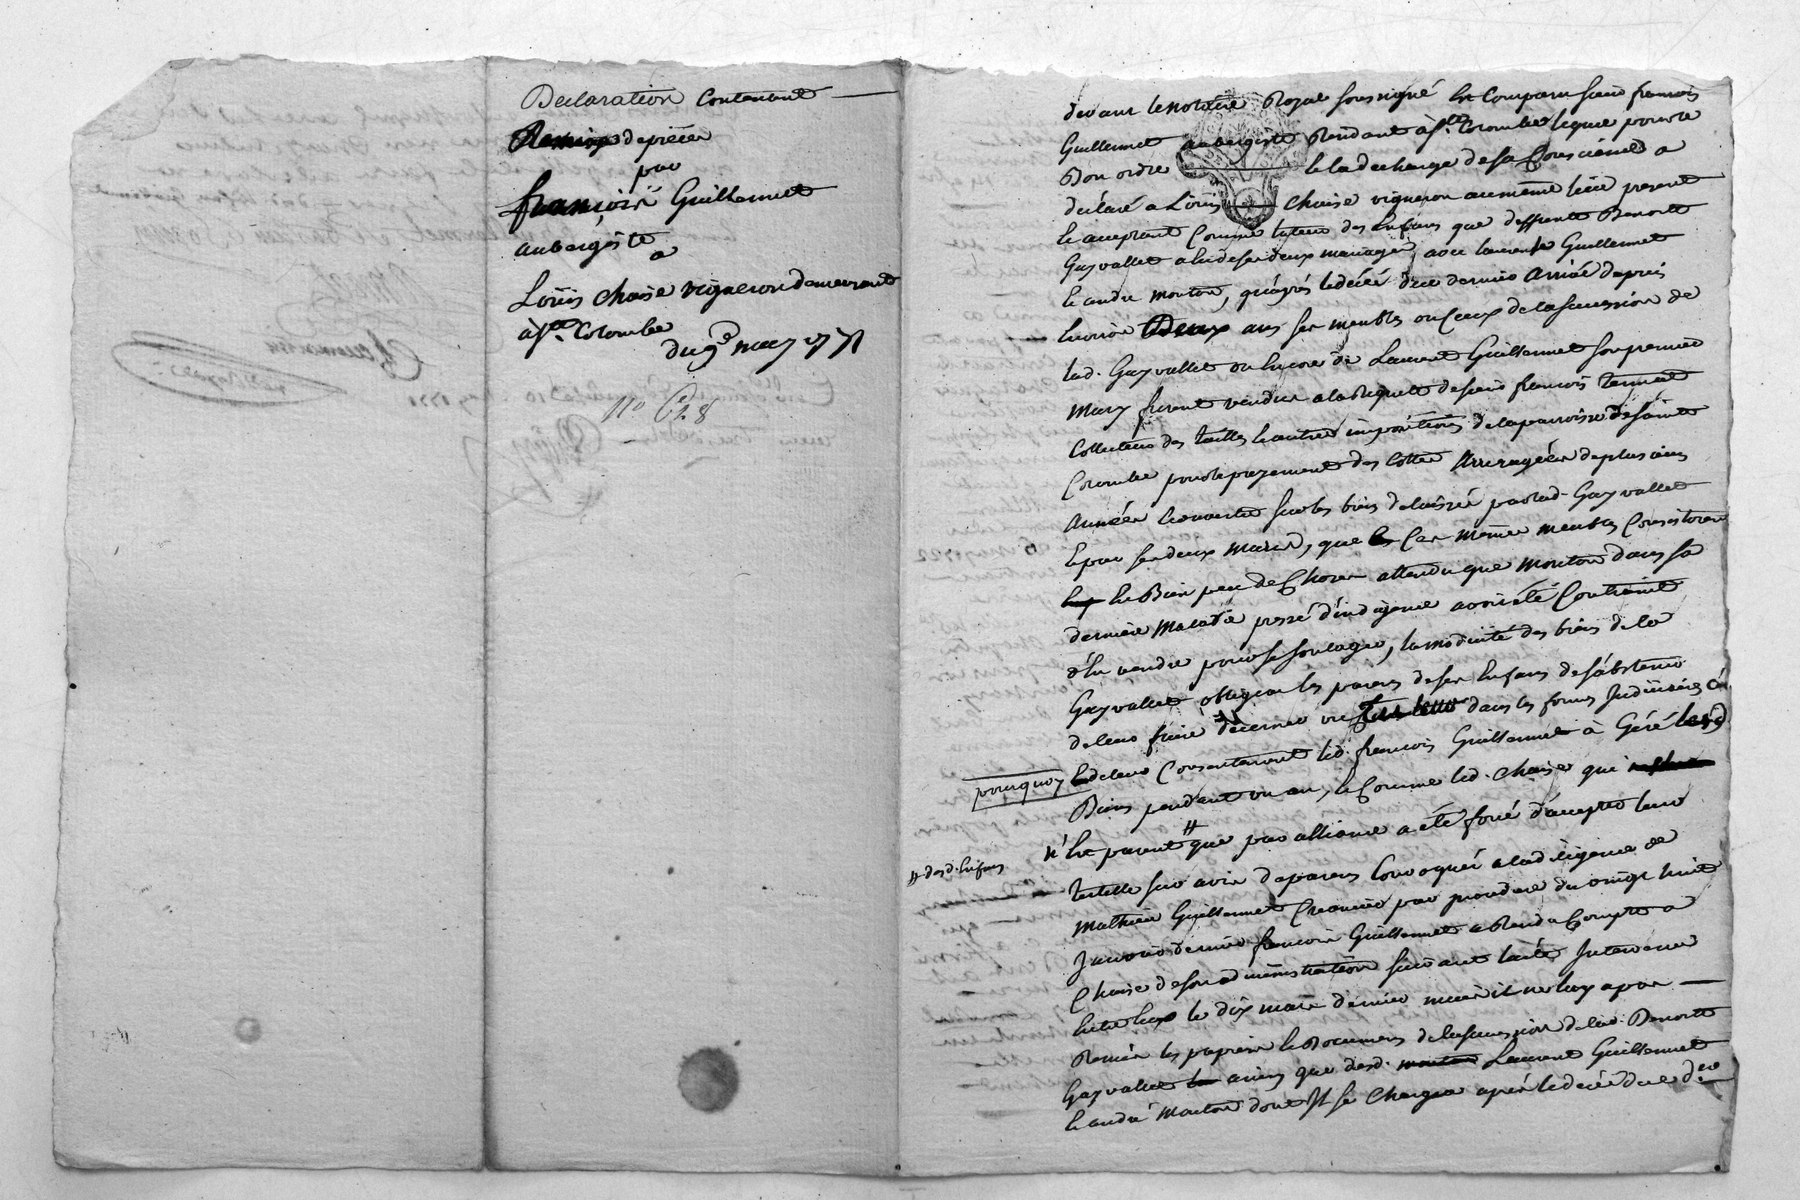 Declaration Contenant
Remise de pièces
par
françois Guillermet
aubergiste
a
Loüis chaise vigneron demeurant
à Ste. Colombe
du 9e may 1771
N° 628
devant le notaire Royal soussigné Est Comparu sieur françois
Guillermet aubergiste Residant à Ste. Colombe lequel pour le
Bon ordre et la decharge de sa Conscience a
déclaré a Loüis chaise vigneron au même lieu present
Et acceptant Comme tuteur des Enfans que deffunte Benoite
Gayvallet a eu de ses deux mariages avec Laurent Guillermet
Et andré mouton, qu'après le décés de ce dernier Arrivé depuis
Environ deux ans les meubles ou Ceux de la succession de
lad. Gayvallet ou Encore de Laurent Guillermet son premier
Mary furent vendus a la Requete de sieur françois
Collecteur des tailles Et autres impositions de la parroisse de Sainte
Colombe pour le payement des Cottes Arreragées de plusieurs
Années Encourues sur les biens delaissés par lad. Gayvallet
Et par ses deux maris, que Ces même meubles Consistoient
En Bien peu de Choses attendu que mouton dans sa
derniere maladie pressé d'indigence avoit été Contraint
d'En vendre pour se soulager, la modicité des biens de la
Gayvallet obligea les parens de ses Enfans de s'abstenir
de leur faire décerner un tuteur dans les formes Judiciaires
pourquoy Et de leur Consentement led. françois Guillermet à Géré Lesd.
Biens pendant un an, Et Comme led. Chaise qui
n'Est parent # que par alliance a été forcé d'accepter leur
# desd. Enfans
tutelle sur avis de parens Convoqués a la diligence de
Mathieu Guillermet Creancier par procedure du vingt huit
Janvier dernier françois Guillermet a Rendu Compte a
Chaise de son administration suivant l'acte Intervenu
Entre Eux le dix mars dernier mais il ne luy a pas
Remis les papiers Et Documens de la succession de lad. Benoite
Gayvallet ainsi que desd. Laurent Guillermet
Et andré Mouton dont Il se Chargea après le décés de ce der